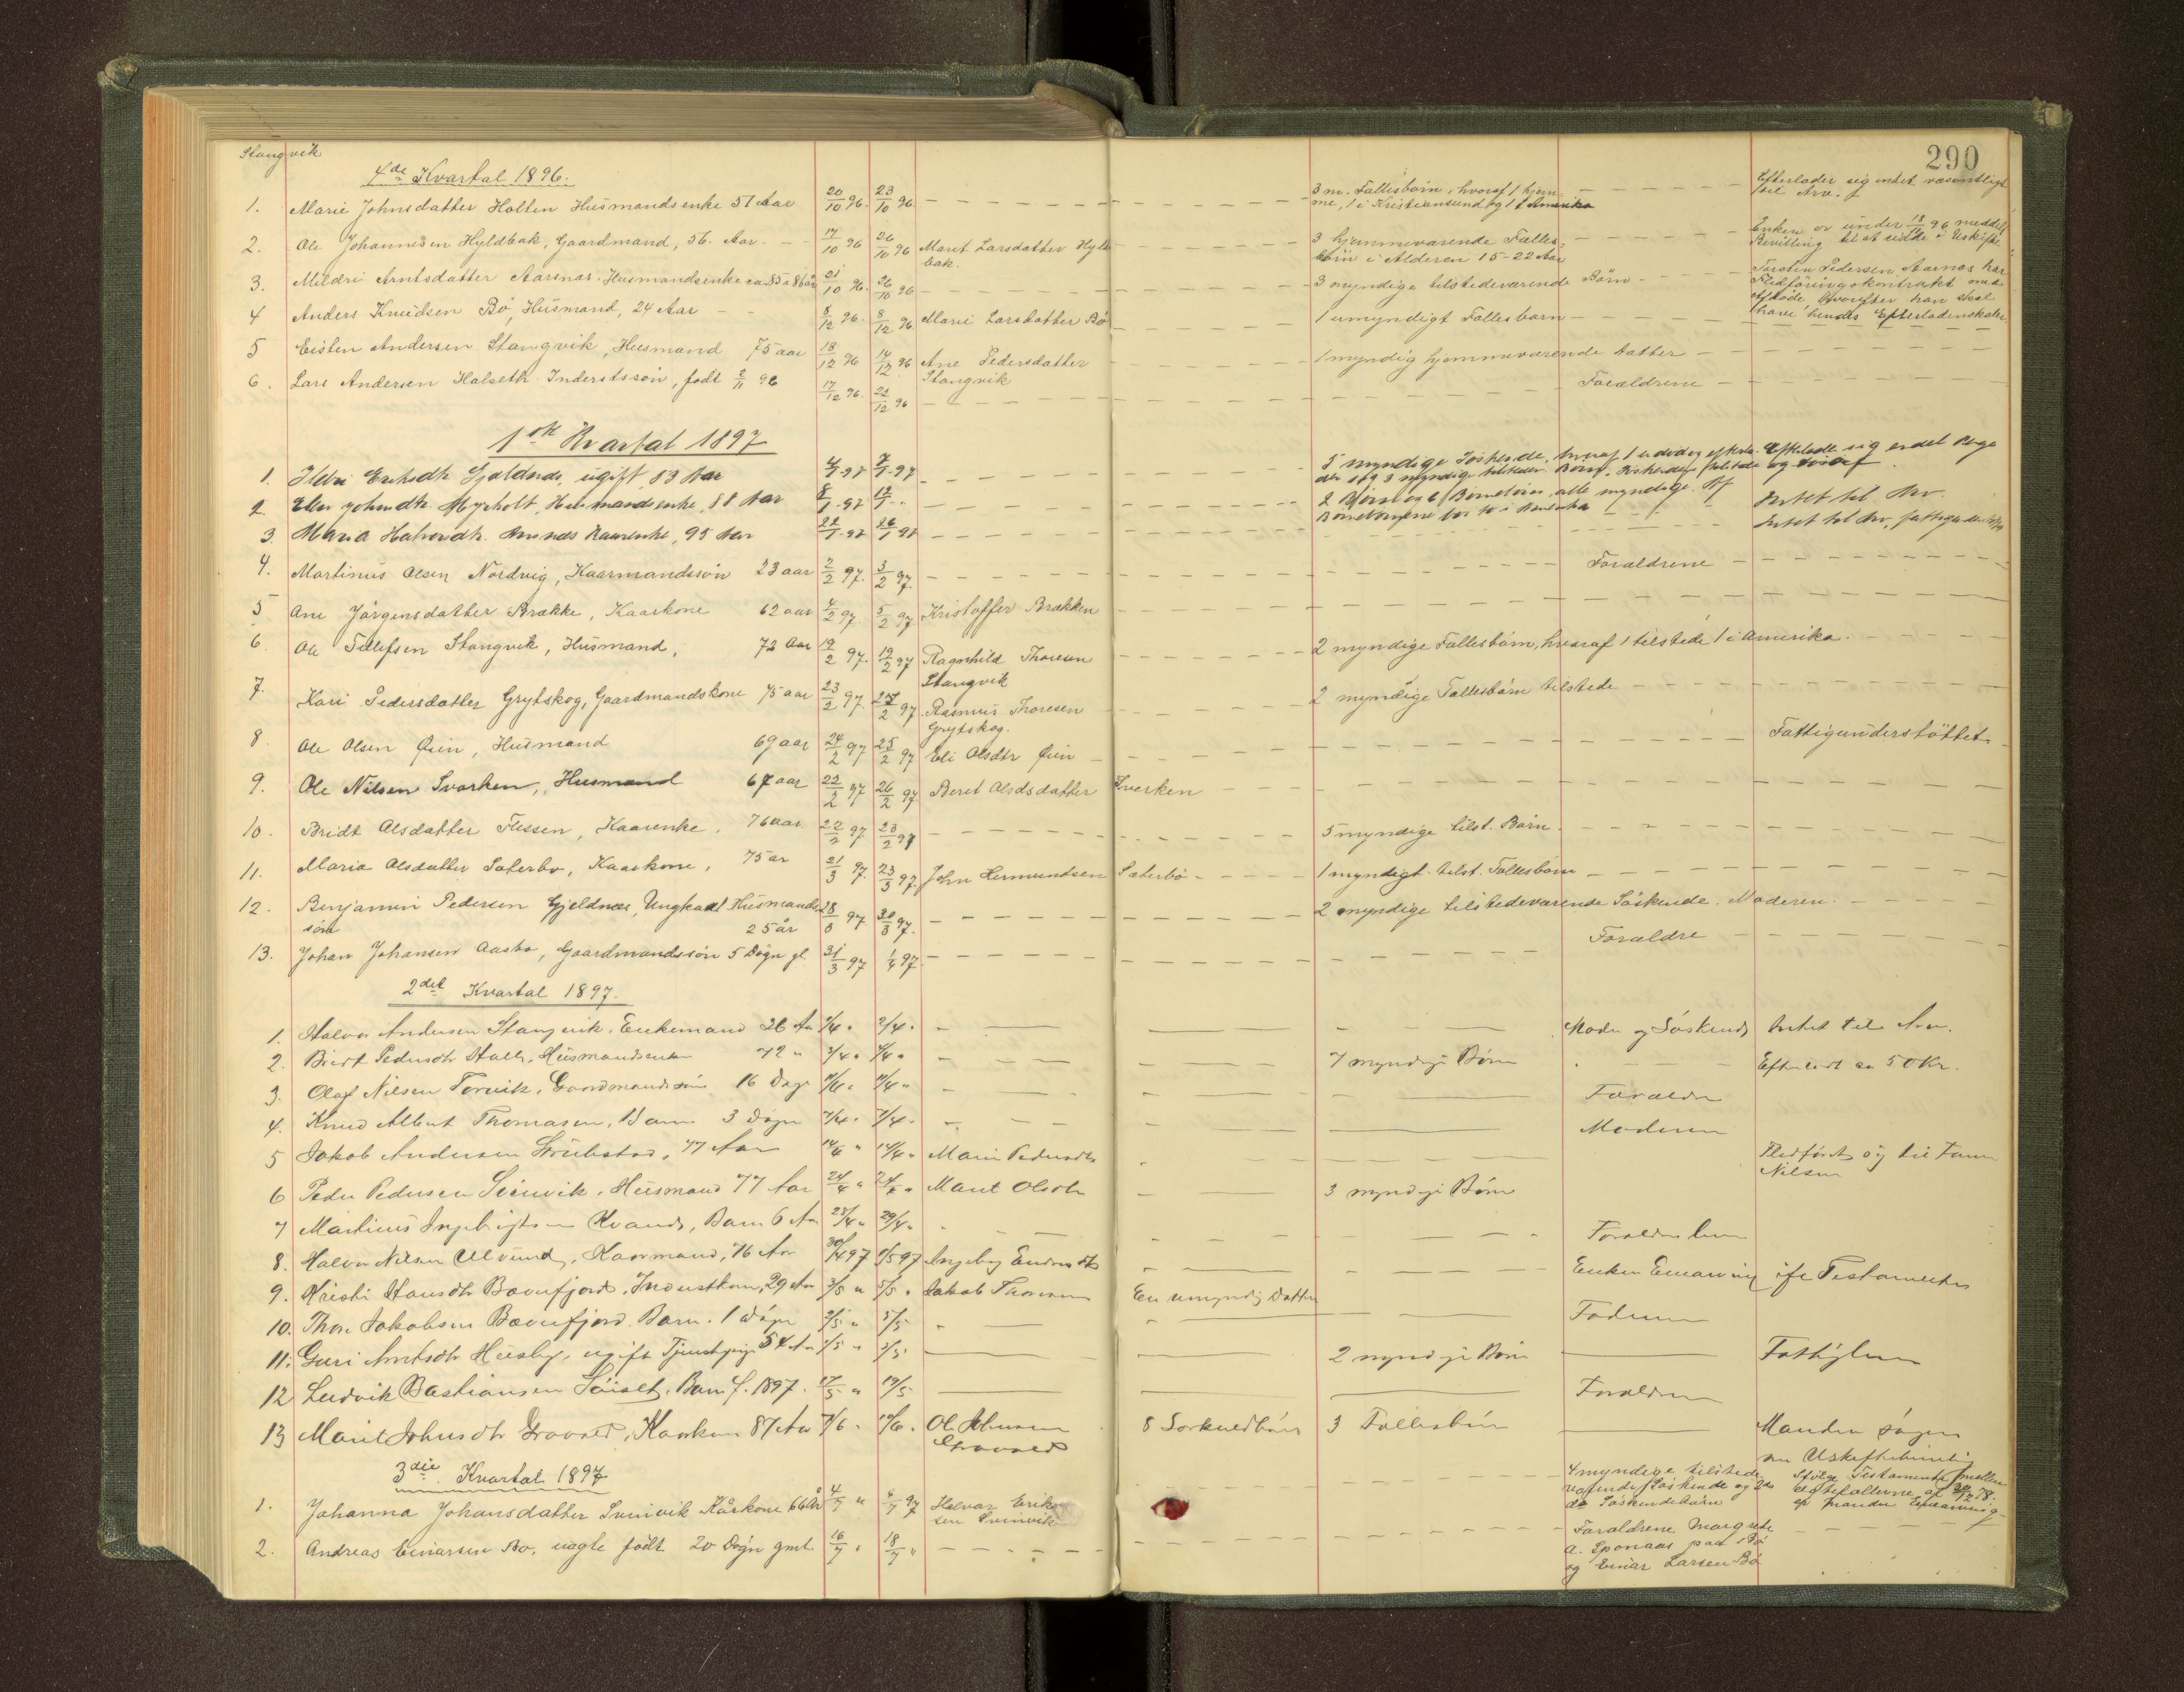 Stangvik
290
4de Kvartal 1896.
1. Marie Johnsdatter Holten Husmandsenke 51 Aar 20/10 96. 23/10 96 3 m. Fællesbörn, hvoraf 1 hjem- Efterlader sig intet væsentligt
me, 1 i Kristiansund og 1 i Amerika til Arv.
2. Ole Johannesen Hyldbak, Gaardmand, 56. Aar. 17/10 96 26/10 96 Marit Larsdatter Hyld 3 hjemmeværende Fælles- Enken er under 18/11 96 meddelt
bak. börn i Alderen 15-22 Aar Bevilling til at sidde i Uskifte
3. Mildri Arntsdatter Aarsnæs, Husmandsenke ca 85 a 86 år 21/10 96. 26/10 96 3 myndige tilstedeværende Börn Torsten Pedersen Aarnæs har
Flödföringskontrakt med
Afdöde, hvorefter han skal
have hendes Efterladenskaber
4 Anders Knudsen Bö, Husmand, 24 Aar 5/12 96. 8/12 96 Marie Larsdatter Bö 1 umyndigt Fællesbarn
5 Eisten Andersen Stangvik, Husmand 75 aar 13/12 96 14/12 96 Ane Pedersdatter 1 myndig hjemmeværende Datter
Stangvik
6. Lars Andersen Halseth Inderstssön, födt 2/11 96 17/12 96. 22/12 96 Forældrene
1ste Kvartal 1897
1. Ildri Eriksdtr Gjeldnes, ugift 83 Aar 4/1 97 7/1 97 5 myndige Söskende, hvoraf 1 er död og efterl. Efterlod sig endel
2. Eli Johnsdtr. Myrholt, Husmandsenke, 88 Aar 8/1 97 12/1 2 Börn og 6 Börnebörn, alle myndige. Af Intet til Arv.
Börnebörnene bor 10 i Amerika
3. Maria Halvorsdtr. Aarnæs Kaarenke, 95 Aar 22/1 97 26/1 97 Intet til Arv, fattigunderst.
4. Martinus Olsen Nordvig, Kaarmandssön 23 aar 2/2 97. 3/2 97. Forældrene
5 Ane Jörgensdatter Brække, Kaarkone 62 aar 4/2 97 5/2 97 Kristoffer Brækken
6. Ole Tellefsen Stangvik, Husmand, 72 Aar 12/2 97. 19/2 97 Ragnhild Thoresen 2 myndige Fællesbörn, hvoraf 1 tilstede 1 i Amerika.
Stangvik
7. Kari Pedersdatter Grytskog, Gaardmandskone 75 aar 23/2 97. 25/2 97 Rasmus Thoresen 2 myndige Fællesbörn tilstede
Grytskog.
8. Ole Olsen Øien, Husmand 69 aar 24/2 97 25/2 97 Eli Olsdtr Øien Fattigunderstöttet
9. Ole Nilsen Sværken, Husmand 67 aar 22/2 97 26/2 97 Beret Olsdsdatter Sverken
10. Bridt Olsdatter Flessen, Kaarenke, 76 aar. 22/2 97 23/2 97 5 myndige tilst. Börn
11. Maria Olsdatter Sæterbö, Kaarkone, 75 år 21/3 97. 23/3 97. John Hermundsen Sæterbö 1 myndigt tilst. Fællesbörn
12. Benjamin Pedersen Gjeldnæs, Ungkarl Husmands- 28/3 97 30/3 97. 2 myndige tilstedeværende Söskende. Moderen.
sön 25 år
13. Johan Johansen Aasbö, Gaardmandssön 5 Dögn gl. 31/3 97 1/4 97. Forældre
2det Kvartal 1897.
1. Halvor Andersen Stangvik, Enkemand 26 Aar 1/4 " 2/4 " Moder og Söskende Intet til Arv.
2. Brit Pedersdtr Halle, Husmandsenke 72 " 3/4 " 7 myndige Börn Efterladt ca 50 Kr.
3. Olaf Nilsen Torvik, Gaardmandssön 16 Dage Forældre
4. Knud Albert Thomasen, Barn 3 Dögn 7/4. 7/4. Moderen
5 Jakob Andersen 77 Aar 14/4 " 14/4 " Marie Pedersdtr Flödfört sig til
Nilsen
6 Peder Pedersen Husmand 77 Aar 24/4 " Marit Olsdtr 3 myndige Börn
7 Martinus Ingebrigtsen Kvande, Barn 6 Aar 28/4 " 29/4 "
8. Halvor Nilsen Ulvund, Kaarmand, 76 Aar 30/4 97 1/5 97 Ingeborg Endresdtr Enken Enearving ifr Testamentet
9. Kristi Hansdtr Bævefjord, Inderstkone, 29 Aar 3/5 " 5/5 " Jakob Thoresen En umyndig Datter
10. Thore Jakobsen Bævefjord. Barn. 1 Dögn 5/5 Faderen
11. Guri Arntsdtr Husby, ugift Tjenestpige 54 Aar 2 myndige Börn Fattiglem
12 Ludvik Bastiansen Barn f. 1897. 17/5 " 19/5 Forældre
13 Marit Johnsdtr Kaarkone 87 Aar 7/6 . Ole Johnsen 8 Særkuldbörn 3 Fællesbörn Manden söger
om Uskiftebevilling
3die Kvartal 1897
1. Johanna Johansdatter Svinvik Kårkone 66 År 4/7 " 6/7 97 Halvor Erik- 4 myndige tilstede- Ifölge Testamente mellem
sen Svinvik værende Söskende og 2 dö- Ægtefællerne af 20/12 78.
de Söskendebörn er manden Enearving
2. Andreas Einarsen Bö, uægte födt 20 Dögn gml. 16/7 " 18/7 " Forældrene Margrete
A. Sponaas paa Bö
og Einar Larsen Bö